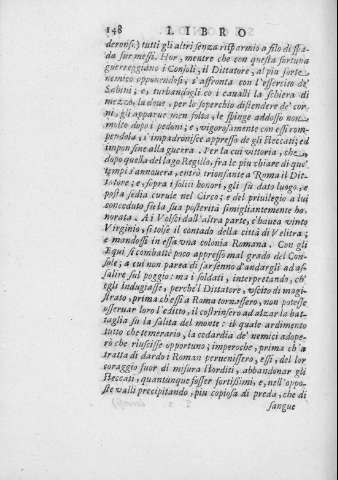 148 LIBRO
deronsi:) tutti gli altri senza risparmio a filo di spa-
da fur messi. Hor, mentre che con questa fortuna
guerreggiano i Consoli, il Dittatore, al piu forte
nemico opponendosi, s'affronta con l'essercito de'
Sabini; e, turbandogli co i caualli la schiera di
mezzo, la doue, per lo soperchio distendere de' cor-
ni, gli apparue men folta, le spinge addosso non
molto dapoi i pedoni; e, vigorosamente con essi rom-
pendola, s'impadronisce appresso de gli steccati; ed
impon fine alla guerra. Per la cui vittoria, che
dopo quella del lago Regillo, fra le piu chiare di que'
tempi s'annouera, entrò trionfante a Roma il Dit-
tatore; e, sopra i soliti honori, gli fu dato luogo, e
posta sedia curule nel Circo; e del priuilegio a lui
conceduto fu la sua posterità simigliantemente ho-
norata. A i Volsci dall'altra parte, c'hauea vinto
Virginio, si tolse il contado della città di Velitra;
e mandossi in essa vna colonia Romana. Con gli
Equi si combattè poco appresso mal grado del Con-
sole; a cui non parea di far senno d'andargli ad as-
salire sul poggio: ma i soldati, interpretando, ch'
egli indugiasse, perche'l Dittatore, vscito di magi-
strato, prima ch'essi a Roma tornassero, non potesse
osseruar loro l'editto, il costrinsero ad alzar la bat-
taglia su la salita del monte: il quale ardimento
tutto che temerario, la codardia de' nemici adope-
rò che riuscisse opportuno; imperoche, prima ch'a
tratta di dardo i Roman peruenissero, essi, del lor
coraggio fuor di misura storditi, abbandonar gli
steccati, quantunque fosser fortissimi, e, nell'oppo-
ste valli precipitando, piu copiosa di preda, che di
sangue